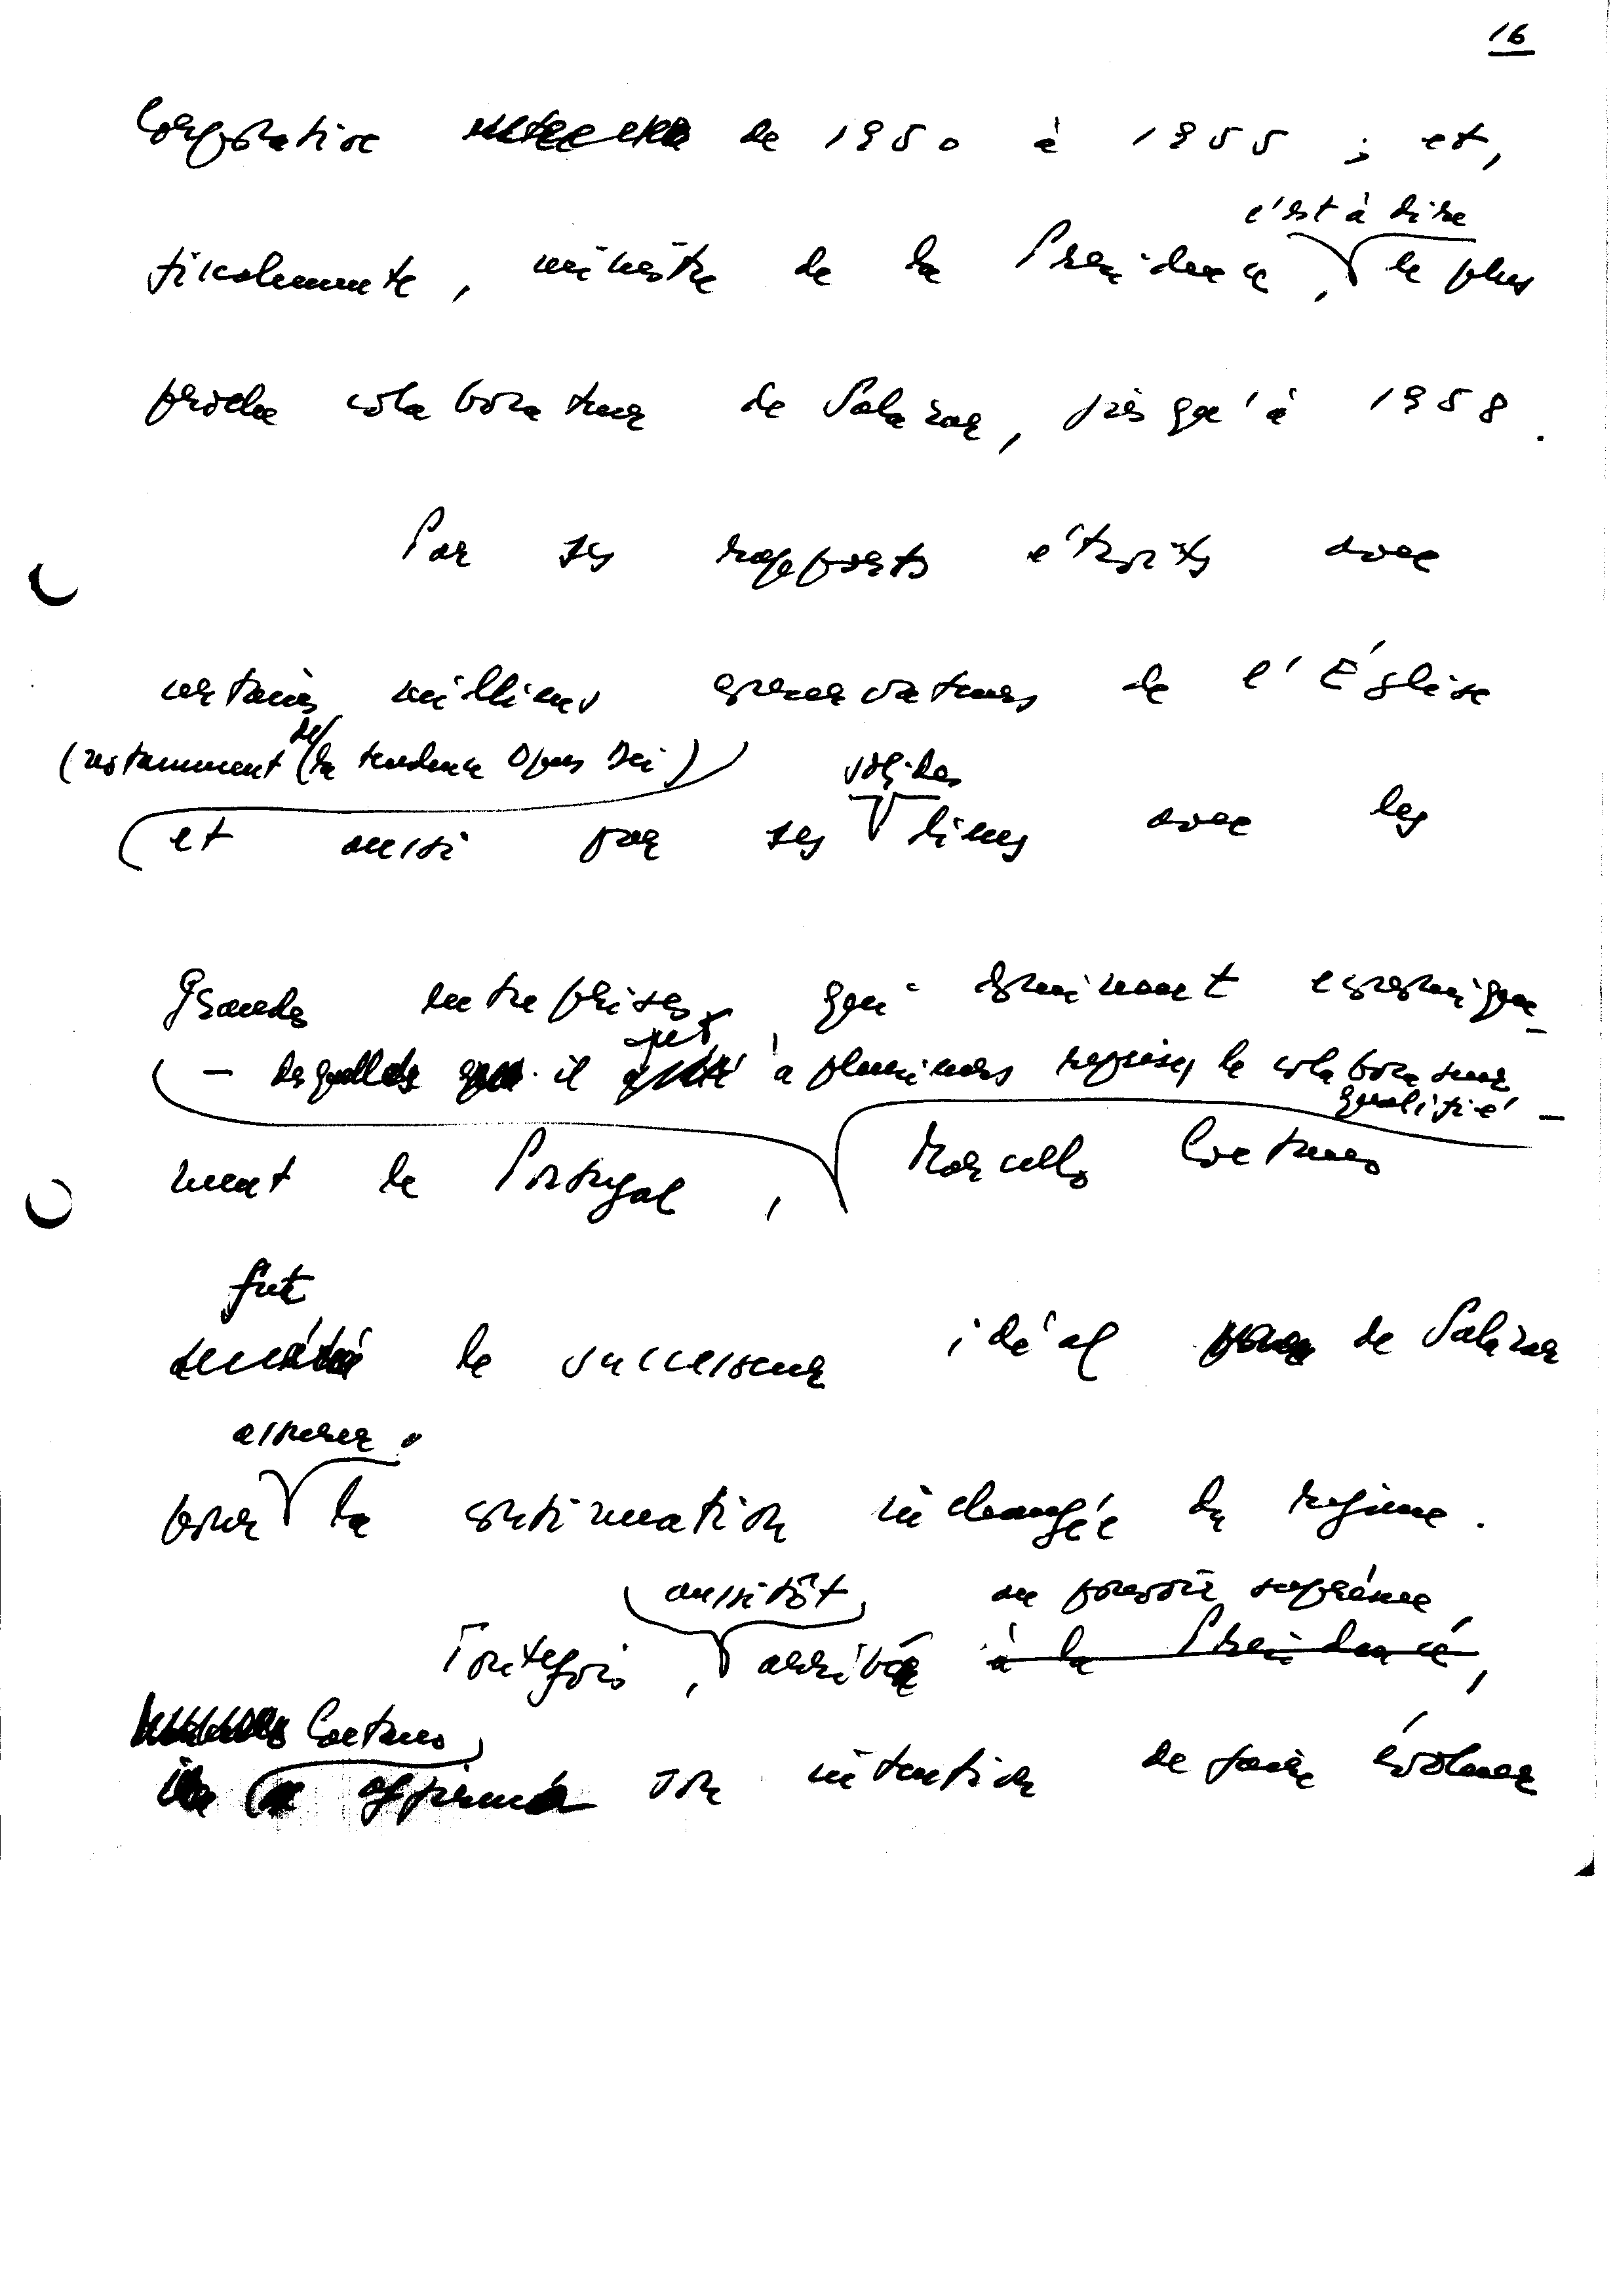 16
Corporative de 1950 à 1955 ; et,
c'est à dire
finalemente, ministre de la Presidence, le plus
proche colaborateur de Salazar, jusqu'à 1958.
Par ses rapports étroits avec
certains millieux conservateurs de l'Église
(notamment de la tendence Opus Dei)
solides
et aussi par ses liens avec les
grandes entreprises, qui dominent economique-
- desquelles il fut à plusieurs reprises le colaborateur
qualifié -
ment le Portugal, Marcello Caetano
fut
le successeur idéal de Salazar
assurer
pour la continuation inchangée du regime.
aussitôt au pouvoir suprême,
Toutefois, arrivé à la Presidence,
Caetano
affirma son intention de faire évoluer